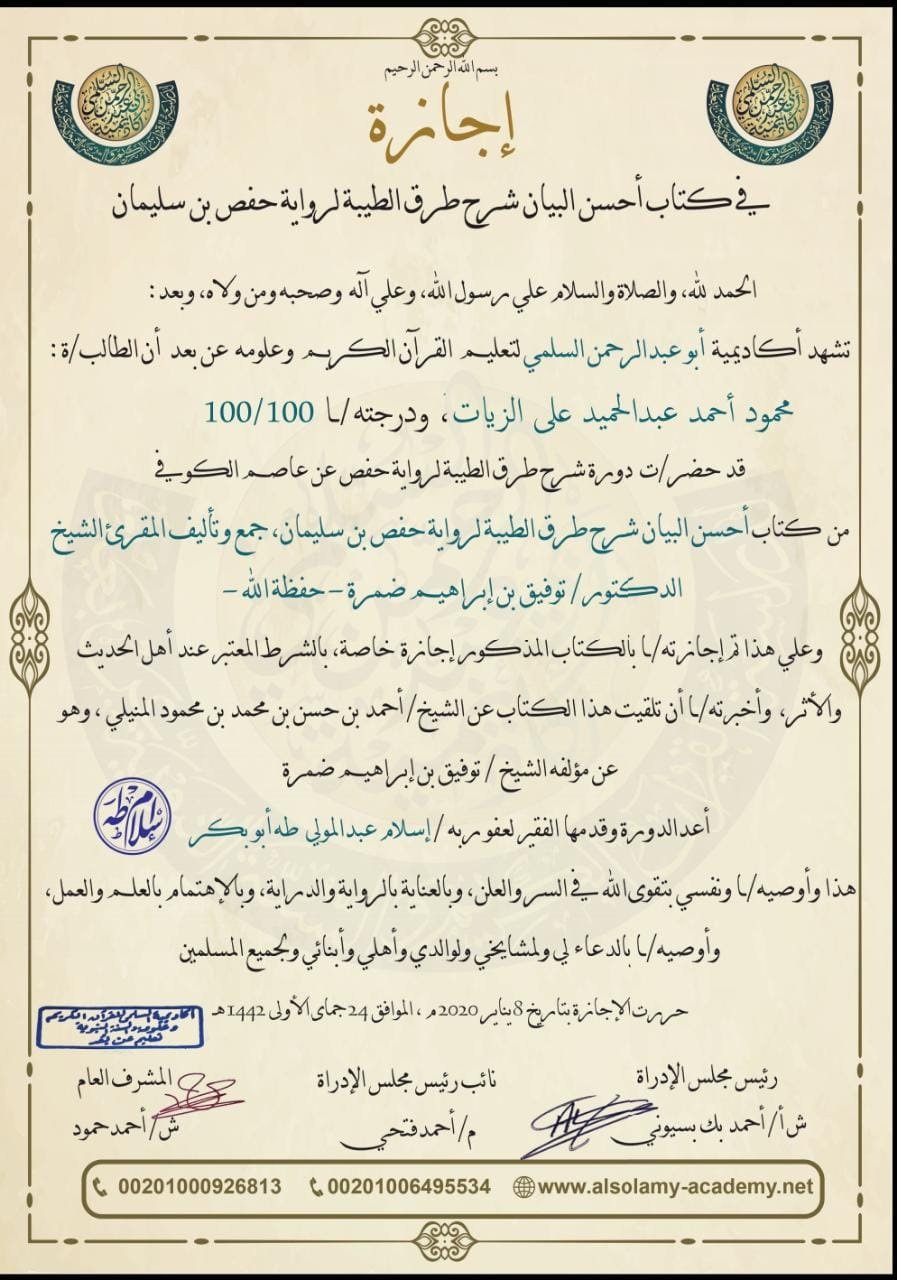 بسم الله الرحمن الرحيم
إجازة
في كتاب أحسن البيان شرح طرق الطيبة لرواية حفص بن سليمان
الحمد لله، والصلاة والسلام علي رسول الله، وعلي آله وصحبه ومن ولاه، وبعد:
تشهد أكاديمية أبو عبد الرحمن السلمي لتعليم القرآن الكريم وعلومه عن بعد أن الطالب/ة:
محمود أحمد عبدالحميد على الزيات، ودرجته/ـا 100/100
قد حضر/ت دورة شرح طرق الطيبة لرواية حفص عن عاصم الكوفي
من كتاب أحسن البيان شرح طرق الطيبة لرواية حفص بن سليمان، جمع وتأليف المقرئ الشيخ
الدكتور/ توفيق بن إبراهيم ضمرة - حفظة الله -
وعلي هذا تم إجازته/ـا بالكتاب المذكور إجازة خاصة، بالشرط المعتبر عند أهل الحديث
والأثر، وأخبرته/ـا أن تلقيت هذا الكتاب عن الشيخ/ أحمد بن حسن بن محمد بن محمود المنيلي، وهو
عن مؤلفه الشيخ / توفيق بن إبراهيم ضمرة
أعد الدورة وقدمها الفقير لعفو ربه / إسلام عبد المولي طه أبو بكر
إسلام طه
هذا وأوصيه/ـا ونفسي بتقوى الله في السر والعلن، وبالعناية بالرواية والدراية، وبالإهتمام بالعلم والعمل،
وأوصيه/ـا بالدعاء لي ولمشايخي ولوالدي وأهلي وأبنائي ولجميع المسلمين
حررت الإجازة بتاريخ 8 يناير 2020م، الموافق 24 جماى الأولى 1442هـ
رئيس مجلس الإدراة
نائب رئيس مجلس الإدراة
المشرف العام
ش أ/ أحمد بك بسيوني
م/ أحمد فتحي
ش/ أحمد حمود
00201000926813
00201006495534
www.alsolamy-academy.net